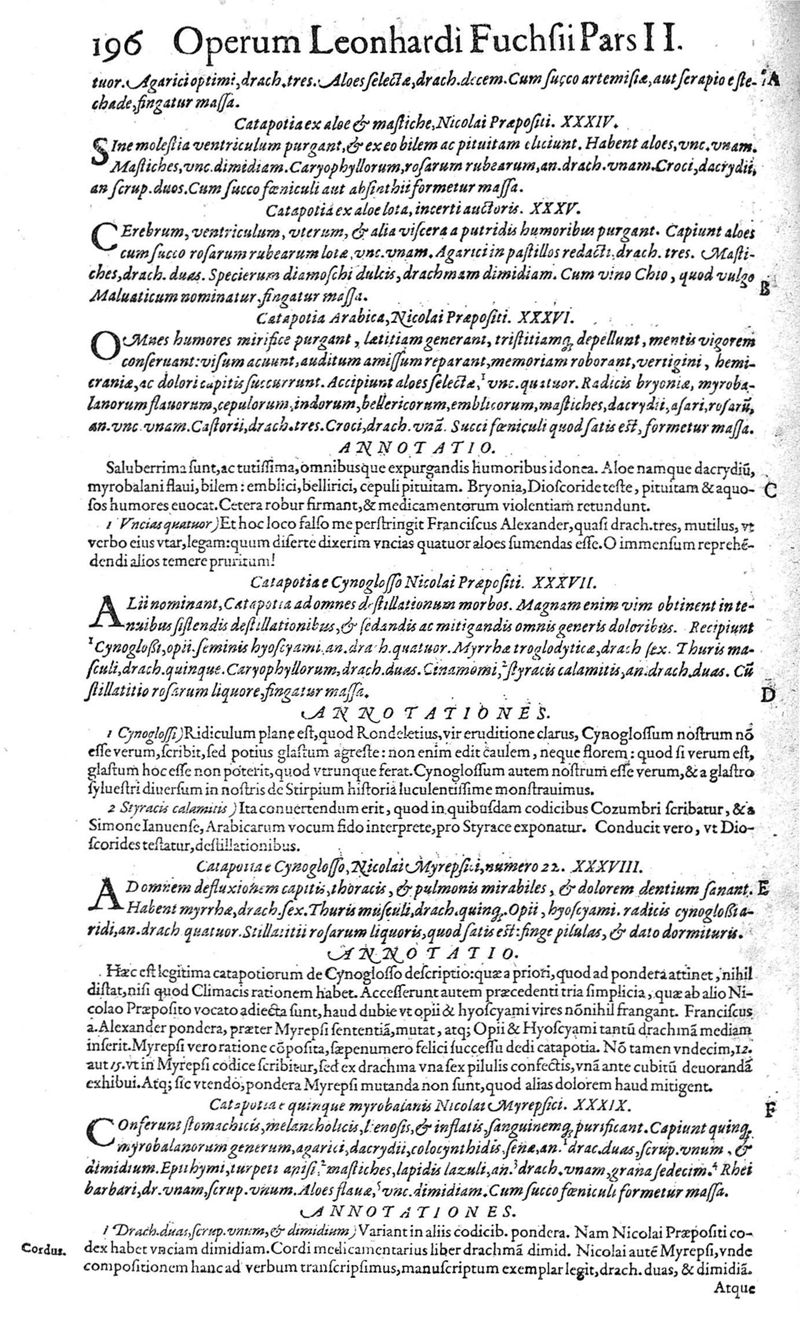 196 Operum Leonhardi Fuchſii Pars II.
tuor. Agarici optimi, drach. tres. Aloes ſelectæ, drach. decem. Cum ſucco artemiſiæ, aut ſerapio e ſtę- A
chade, fingatur maſſa.
Catapotia ex aloe & maſtiche, Nicolai Præpoſiti. XXXIV.
SIne moleſtia ventriculum purgant, & ex eo bilem ac pituitam eliciunt. Habent aloes, vnc. vnam.
Maſtiches, vnc. dimidiam. Caryophyllorum, roſarum rubearum, an. drach. vnam. Croci, dacrydii,
an ſcrup. duos. Cum ſucco fœniculi aut abſinthii formetur maſſa.
Catapotia ex aloe lota, incerti auctoris. XXXV.
CErebrum, ventriculum, vterum, & alia viſcera a putridis humoribus purgant. Capiunt aloes
cum ſucco roſarum rubearum lotæ, vnc. vnam. Agarici in paſtillos redacti, drach. tres. Maſti-
ches, drach. duas. Specierum diamoſchi dulcis, drachmam dimidiam. Cum vino Chio, quod vulgo B
Maluaticum nominatur, fingatur maſſa.
Catapotia Arabica, Nicolai Præpoſiti. XXXVI.
OMnes humores mirifice purgant, lætitiam generant, triſtitiamq; depellunt, mentis vigorem
conſeruant: viſum acuunt, auditum amiſſum reparant, memoriam roborant, vertigini, hemi-
craniæ, ac dolori capitis ſuccurrunt. Accipiunt aloes ſelectæ, ¹ vnc. quatuor. Radicis bryoniæ, myroba-
lanorum flauorum, cepulorum, indorum, bellericorum, emblicorum, maſtiches, dacrydii, aſari, roſarũ,
an. vnc. vnam. Caſtorii, drach. tres. Croci, drach. vnã. Succi fœniculi quod ſatis eſt, formetur maſſa.
ANNOTATIO.
Saluberrima ſunt, ac tutiſſima, omnibusque expurgandis humoribus idonea. Aloe namque dacrydiũ,
myrobalani flaui, bilem: emblici, bellirici, cepuli pituitam. Bryonia, Dioſcoride teſte, pituitam & aquo- C
ſos humores euocat. Cetera robur firmant, & medicamentorum violentiam retundunt.
1 Vncias quatuor) Et hoc loco falſo me perſtringit Franciſcus Alexander, quaſi drach. tres, mutilus, vt
verbo eius vtar, legam: quum diſerte dixerim vncias quatuor aloes ſumendas eſſe. O immenſum reprehẽ-
dendi alios temere pruritum!
Catapotia e Cynogloſſo Nicolai Præpoſiti. XXXVII.
ALii nominant, Catapotia ad omnes deſtillationum morbos. Magnam enim vim obtinent in te-
nuibus ſiſtendis deſtillationibus, & ſedandis ac mitigandis omnis generis doloribus. Recipiunt
¹ Cynogloßi, opii, ſeminis hyoſcyami, an. drach. quatuor. Myrrhæ troglodyticæ, drach ſex. Thuris ma-
ſculi, drach. quinque. Caryophyllorum, drach. duas. Cinamomi, ² ſtyracis calamitis, an. drach. duas. Cũ
ſtillatitio roſarum liquore, fingatur maſſa. D
ANNOTATIONES.
1 Cynogloſſi) Ridiculum plane eſt, quod Rondeletius, vir eruditione clarus, Cynogloſſum noſtrum nõ
eſſe verum, ſcribit, ſed potius glaſtum agreſte: non enim edit caulem, neque florem: quod ſi verum eſt,
glaſtum hoc eſſe non poterit, quod vtrunque ferat. Cynogloſſum autem noſtrum eſſe verum, & a glaſtro
ſylueſtri diuerſum in noſtris de Stirpium hiſtoria luculentiſſime monſtrauimus.
2 Styracis calamitis) Ita conuertendum erit, quod in quibuſdam codicibus Cozumbri ſcribatur, & a
Simone Ianuenſe, Arabicarum vocum fido interprete, pro Styrace exponatur. Conducit vero, vt Dio-
ſcorides teſtatur, deſtillationibus.
Catapotia e Cynogloſſo, Nicolai Myrepſici, numero 22. XXXVIII.
AD omnem defluxionem capitis, thoracis, & pulmonis mirabiles, & dolorem dentium ſanant. E
Habent myrrhæ, drach. ſex. Thuris muſculi, drach. quinq. Opii, hyoſcyami. radicis cynogloßi a-
ridi, an. drach quatuor. Stillatitii roſarum liquoris, quod ſatis eſt: finge pilulas, & dato dormituris.
ANNOTATIO.
Hæc eſt legitima catapotiorum de Cynogloſſo deſcriptio: quæ a priori, quod ad pondera attinet, nihil
diſtat, niſi quod Climacis rationem habet. Acceſſerunt autem præcedenti tria ſimplicia, quæ ab alio Ni-
colao Præpoſito vocato adiecta ſunt, haud dubie vt opii & hyoſcyami vires nõnihil frangant. Franciſcus
a. Alexander pondera, præter Myrepſi ſententiã, mutat, atq; Opii & Hyoſcyami tantũ drachmã mediam
inſerit. Myrepſi vero ratione cõpoſita, ſæpenumero felici ſucceſſu dedi catapotia. Nõ tamen vndecim, 12.
aut 15. vt in Myrepſi codice ſcribitur, ſed ex drachma vna ſex pilulis confectis, vnã ante cubitũ deuorandã
exhibui. Atq; ſic vtendo, pondera Myrepſi mutanda non ſunt, quod alias dolorem haud mitigent.
Catapotia e quinque myrobalanis Nicolai Myrepſici. XXXIX. F
COnferunt ſtomachicis, melancholicis, lienoſis, & inflatis, ſanguinemq; purificant. Capiunt quinq;
myrobalanorum generum, agarici, dacrydii, colocynthidis, ſenæ, an. ¹ drac. duas, ſcrup. vnum, &
dimidium. Epithymi, turpeti aniſi, ² maſtiches, lapidis lazuli, an. ³ drach. vnam, grana ſedecim. ⁴ Rhei
barbari, dr. vnam, ſcrup. vnum. Aloes flauæ, ⁵ vnc. dimidiam. Cum ſucco fœniculi formetur maſſa.
ANNOTATIONES.
1 Drach. duas, ſcrup. vnum, & dimidium) Variant in aliis codicib. pondera. Nam Nicolai Præpoſiti co-
Cordus. dex habet vnciam dimidiam. Cordi medicamentarius liber drachmã dimid. Nicolai autẽ Myrepſi, vnde
compoſitionem hanc ad verbum tranſcripſimus, manuſcriptum exemplar legit, drach. duas, & dimidiã.
Atque